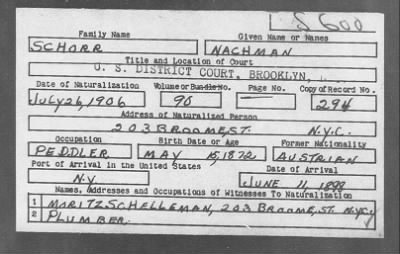 S600
Family Name Given Name or Names
SCHORR NACHMAN
Title and Location of Court
U. S. DISTRICT COURT, BROOKLYN,
Date of Naturalization Volume or Bundle No. Page No. Copy of Record No.
JULY 26, 1906 90 294
Address of Naturalized Person
203 BROOME, ST. N.Y.C.
Occupation Birth Date or Age Former Nationality
PEDDLER MAY 15, 1872 AUSTRIAN
Port of Arrival in the United States, Date of Arrival
N.Y. JUNE 11, 1898
Names, Addresses and Occupations of Witnesses To Naturalization
1 MORITZ SCHELLEMAN, 203 BROOME, ST. N.Y.C.
2 PLUMBER.